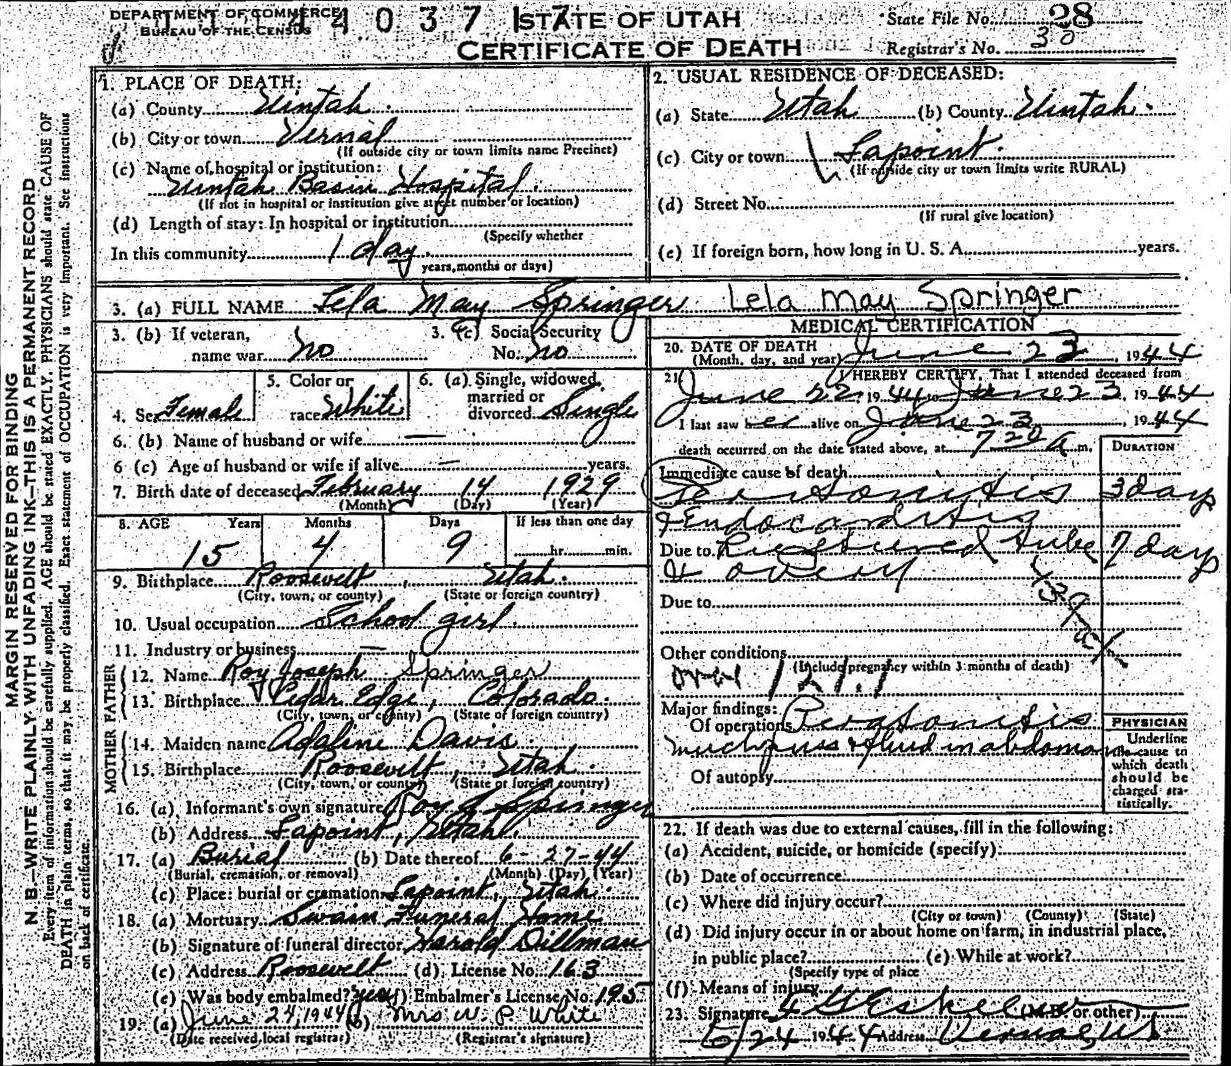 DEPARTMENT OF COMMERCE
BUREAU OF THE CENSUS
4 4 0 3 7 1 7
STATE OF UTAH
CERTIFICATE OF DEATH
State File No. 28
Registrar's No. 30
MARGIN RESERVED FOR BINDING
N. B.—WRITE PLAINLY WITH UNFADING INK—THIS IS A PERMANENT RECORD
Every item of information should be carefully supplied. AGE should be stated EXACTLY. PHYSICIANS should state CAUSE OF
DEATH in plain terms, so that it may be properly classified. Exact statement of OCCUPATION is very important. See instructions
on back of certificate.
1. PLACE OF DEATH:
(a) County Uintah
(b) City or town Vernal
(If outside city or town limits name Precinct)
(c) Name of hospital or institution:
Uintah Basin Hospital
(If not in hospital or institution give street number or location)
(d) Length of stay: In hospital or institution
(Specify whether
In this community 1 day
years, months or days)
2. USUAL RESIDENCE OF DECEASED:
(a) State Utah (b) County Uintah
(c) City or town Lapoint
(If outside city or town limits write RURAL)
(d) Street No.
(If rural give location)
(e) If foreign born, how long in U. S. A. years.
3. (a) FULL NAME Lela May Springer Lela May Springer
3. (b) If veteran,
name war no
3. (c) Social Security
No. no
4. Sex Female
5. Color or
race White
6. (a) Single, widowed,
married or
divorced Single
6. (b) Name of husband or wife —
6 (c) Age of husband or wife if alive — years.
7. Birth date of deceased February 14 1929
(Month) (Day) (Year)
8. AGE Years Months Days If less than one day
15 4 9 hr. min.
9. Birthplace Roosevelt, Utah.
(City, town, or county) (State or foreign country)
10. Usual occupation School girl
11. Industry or business —
FATHER
12. Name Roy Joseph Springer
13. Birthplace Cedar Edge, Colorado.
(City, town, or county) (State of foreign country)
MOTHER
14. Maiden name Adaline Davis
15. Birthplace Roosevelt, Utah
(City, town, or county) (State or foreign country)
16. (a) Informant's own signature Roy J Springer
(b) Address Lapoint, Utah.
17. (a) Burial (b) Date thereof 6-27-44
(Burial, cremation, or removal) (Month) (Day) (Year)
(c) Place: burial or cremation Lapoint, Utah.
18. (a) Mortuary Swain Funeral Home
(b) Signature of funeral director Harold Dillman
(c) Address Roosevelt (d) License No. 163
(e) Was body embalmed? yes (f) Embalmer's License No. 195
19. (a) June 24, 1944 (b) Mrs W. P. White
(Date received local registrar) (Registrar's signature)
MEDICAL CERTIFICATION
20. DATE OF DEATH
(Month, day, and year) June 23, 1944
21. I HEREBY CERTIFY, That I attended deceased from
June 22, 1944 to June 23, 1944
I last saw her alive on June 23, 1944
death occurred on the date stated above, at 7 20 a m.
DURATION
Immediate cause of death
Peritonitis 3 days
& Endocarditis
Due to Ruptured tube 7 days
& overy
Due to
Other conditions
(Include pregnancy within 3 months of death)
121.1
Major findings:
Of operations Peritonitis
much puss & fluid in abdoman
Of autopsy
PHYSICIAN
Underline
the cause to
which death
should be
charged sta-
tistically.
22. If death was due to external causes, fill in the following:
(a) Accident, suicide, or homicide (specify):
(b) Date of occurrence:
(c) Where did injury occur?
(City or town) (County) (State)
(d) Did injury occur in or about home on farm, in industrial place,
in public place? (e) While at work?
(Specify type of place
(f) Means of injury
23. Signature or other)
6/24 1944 Address